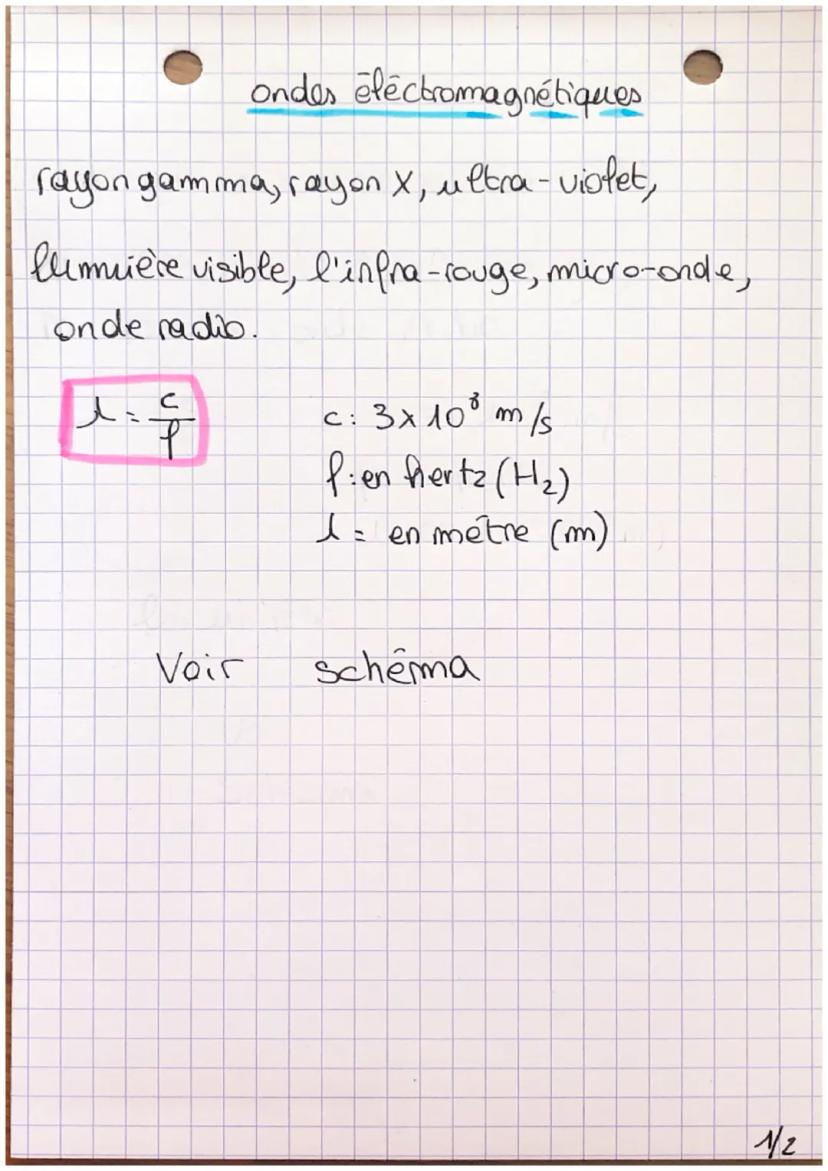 ondes éléctromagnétiques
rayon gamma, rayon X, ultra-violet,
lumuière visible, l'infra-rouge, micro-onde,
onde radio.
λ = c/f
c : 3 x 10⁸ m/s
f : en hertz (H₂)
λ = en métre (m)
Voir schéma
1/2